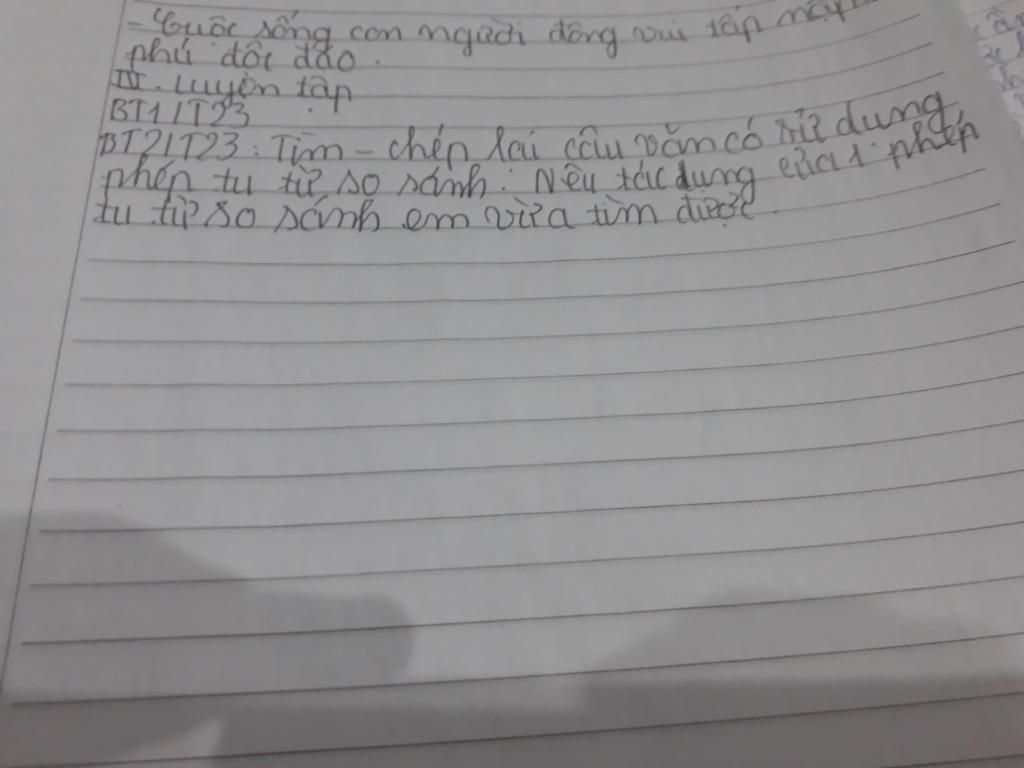 - Cuộc sống con người đông vui tấp nập
phú độc đáo.
III. Luyện tập
BT1/T23
BT2/T23: Tìm - chép lại câu văn có sử dụng
phép tu từ so sánh. Nêu tác dụng của 1 phép
tu từ so sánh em vừa tìm được.